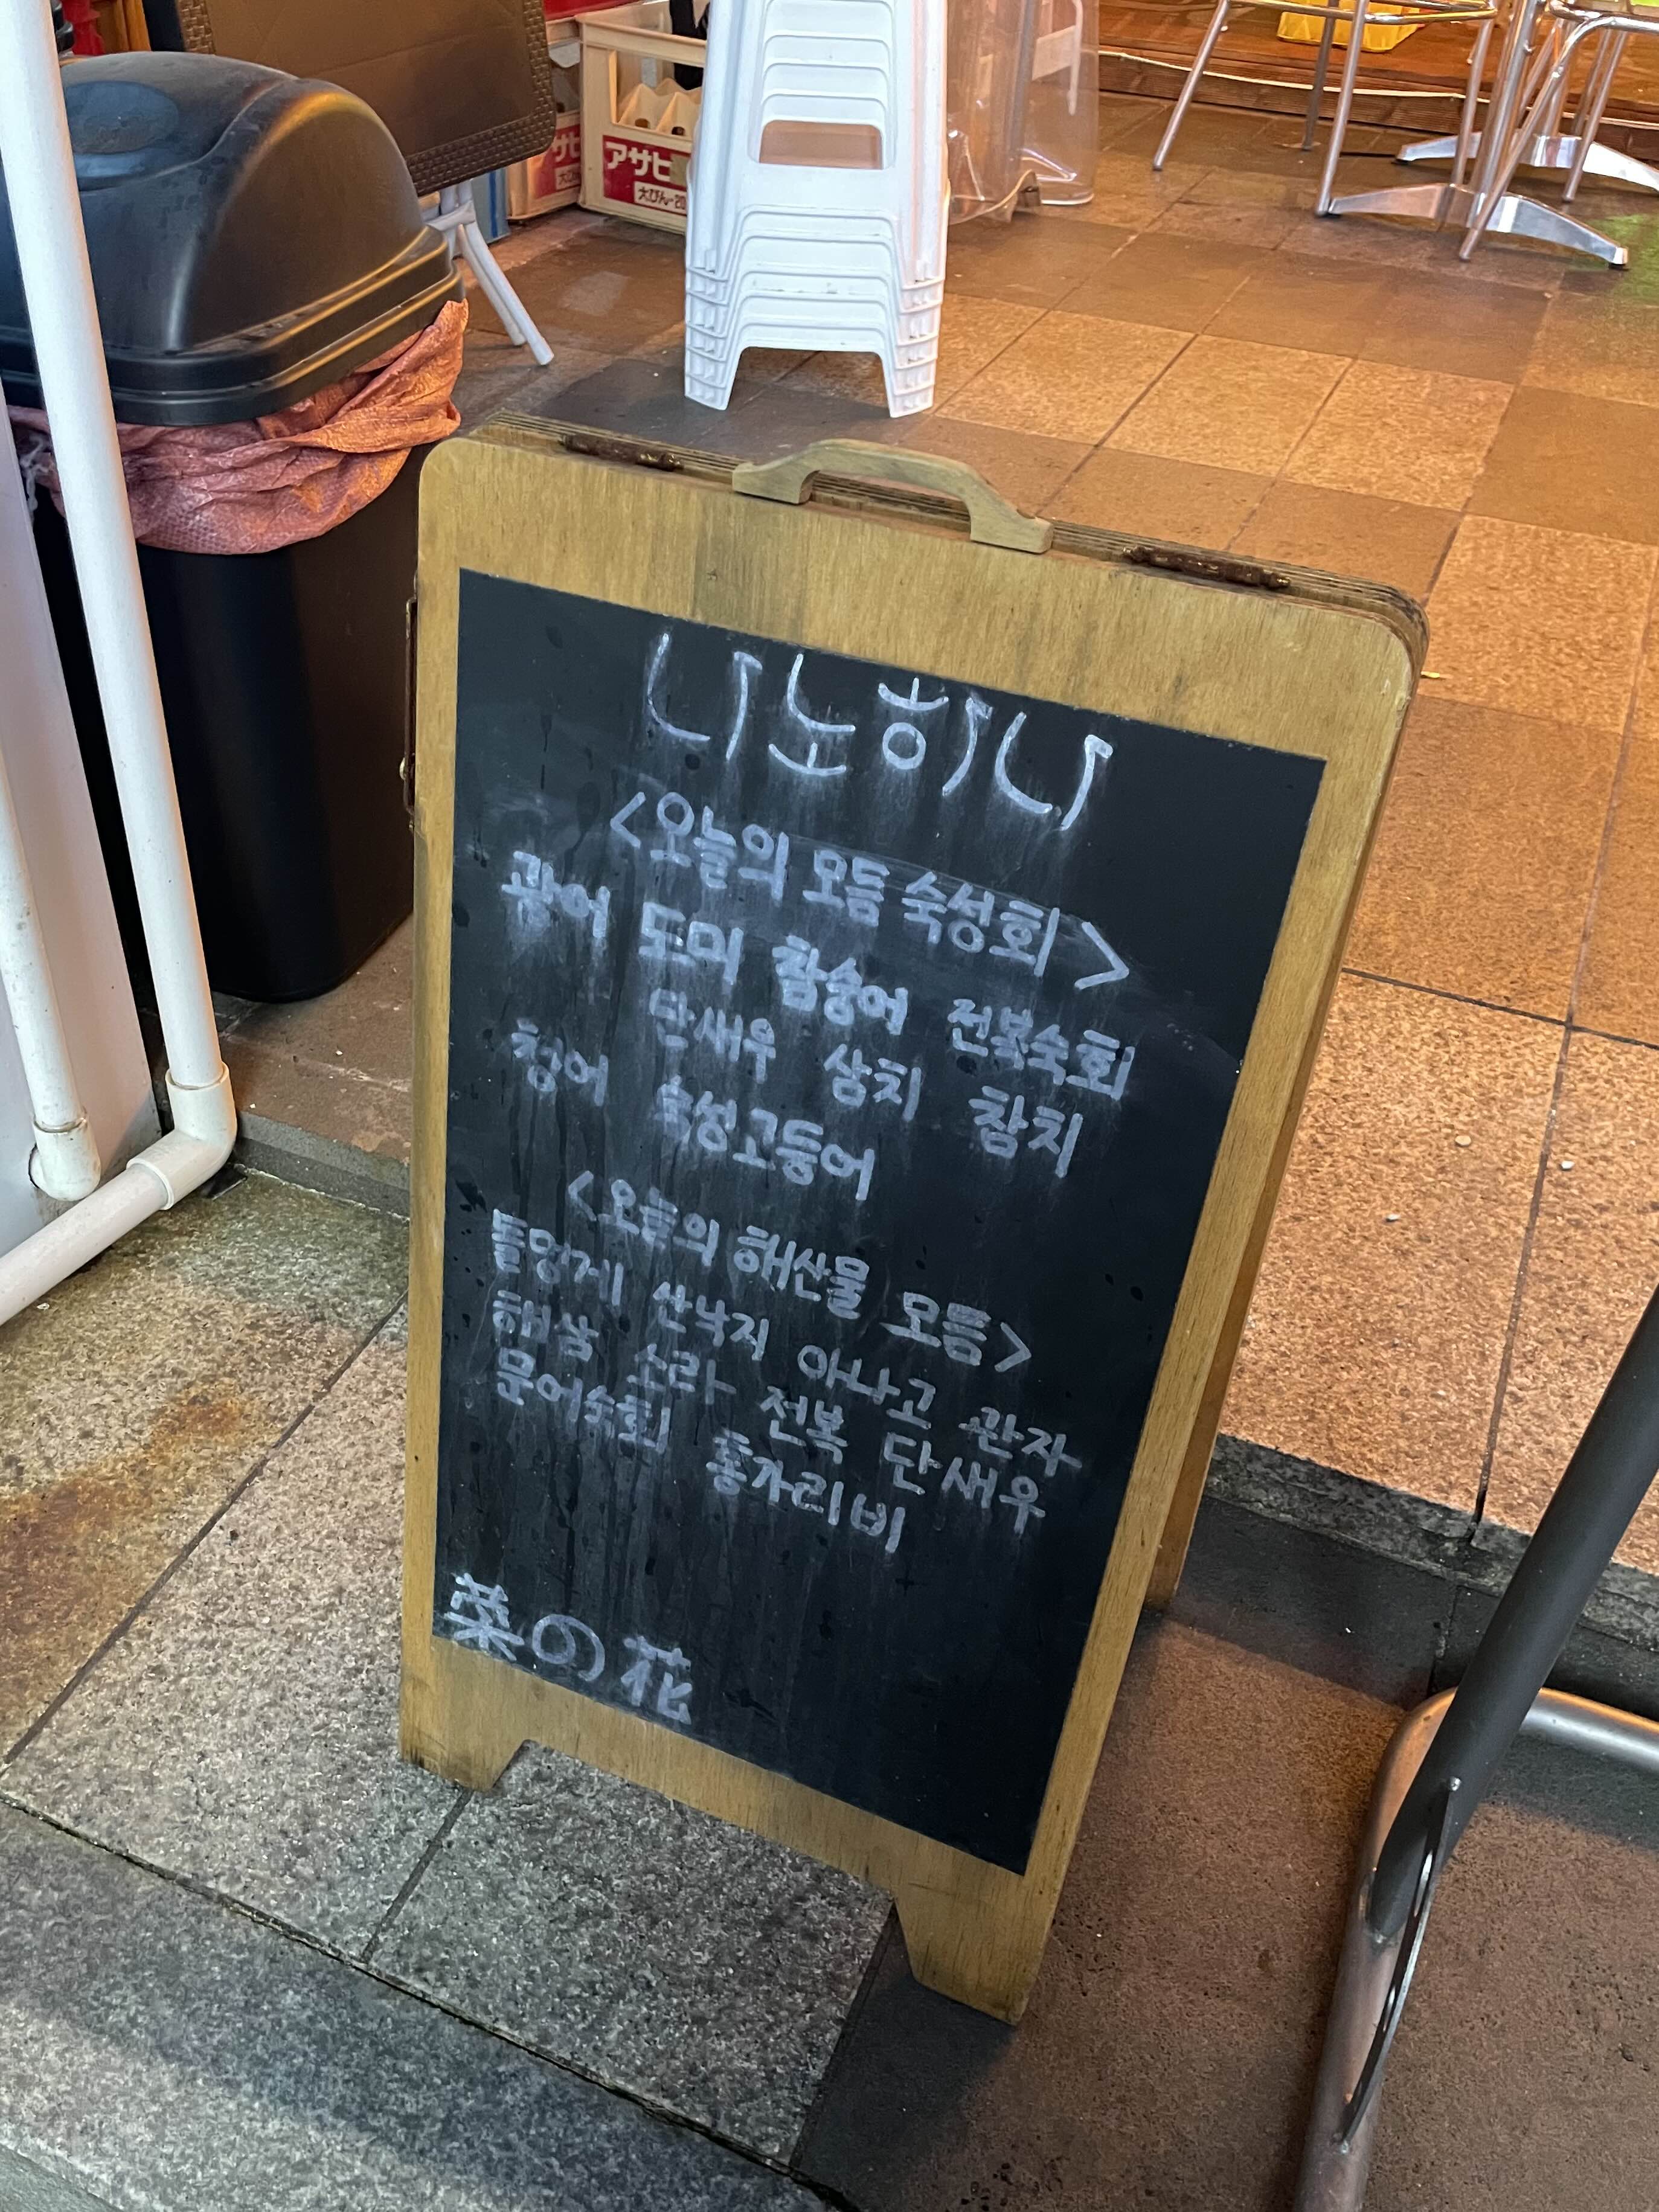 アサヒ
大びん-20
니노히니
<오늘의 모듬 숙성회>
광어 도미 참숭어 전복숙회
단새우 삼치 참치
청어 숙성고등어
<오늘의 해산물 모듬>
돌멍게 산낙지 아나고 관자
해삼 소라 전복 단새우
문어숙회 홍가리비
菜の花